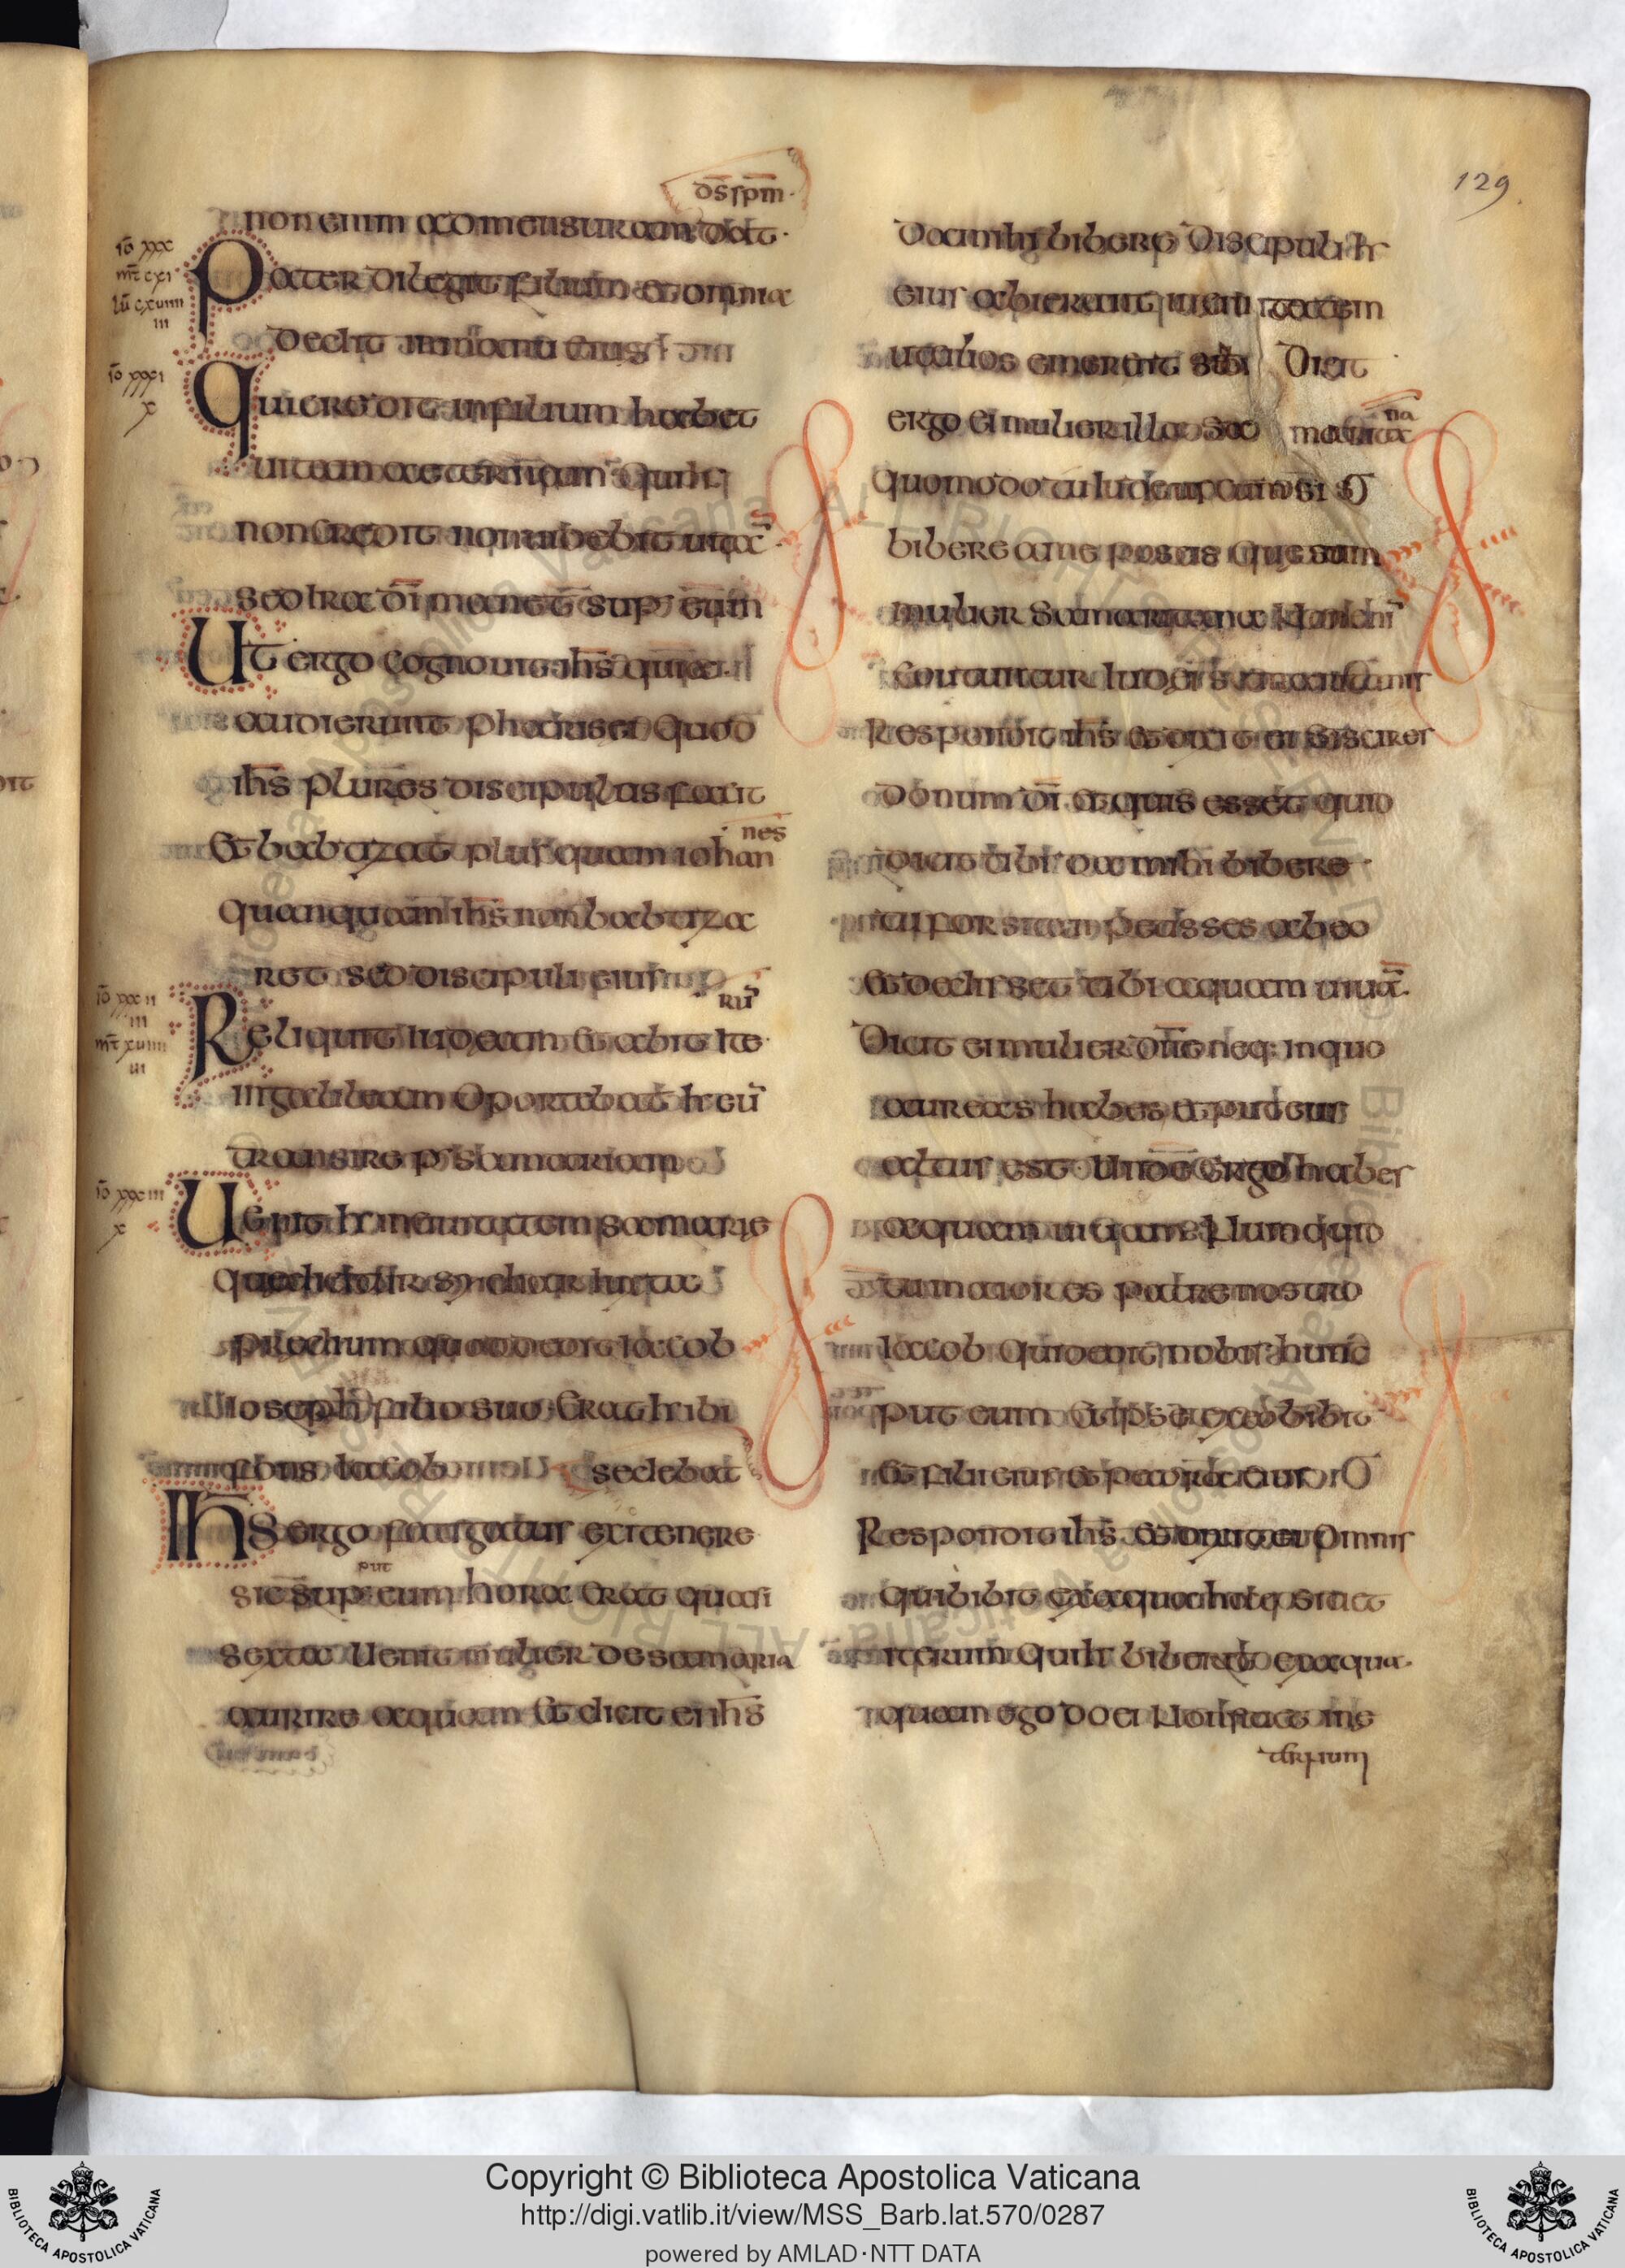 129
ds spm
non enim ad mensuram dat
io xxx
mt cxi
lu cxuiiii
iii
Pater diligit filium et omnia
dedit in manu eius
io xxxi
x
qui credit in filium habet
uitam aeternam Qui
non credit non uidebit uita
sed ira di manet sup eum
Ut ergo cognouit ihs quia
audierunt pharisei quod
ihs plures discipulos facit
nes
et babtizat plus quam iohan
quanquam ihs non babtiza
ret sed discipuli eius
rū
io xxxii
iii
mt xuiiii
iii
Reliquit iudeam et abit ite
in galileam Oportebat h eū
transire p samariam
io xxxiii
x
Uenit h in ciuitatem samarie
que dicitur sychar iuxta
predium quod dedit iacob
ioseph filio suo Erat h ibi
fons iacob sedebat
IHS ergo fatigatus ex itenere
put
sic sup eum hora erat quasi
sexta Uenit mulier de samaria
aurire aquam Et dicit ei ihs
da mihi bibere Discipuli h
eius abierant in ciuitatem
ut cibos emerent sibi Dicit
na
ergo ei mulier illa sa marita
quomodo tu iudeus cum sis
bibere a me poscis que sum
mulier samaritana
coutuntur iudei samaritanis
Respondit ihs et dixit ei si scires
donum di et quis esset qui
dicit tibi da mihi bibere
tu forsitam petisses ab eo
et dedisset tibi aquam uiuā
Dicit ei mulier dne neq: in quo
aureas habes et puteus
altus est Unde ergo habes
aquam uiuam Numquid
tu maior es patre nostro
iacob qui dedit nobis hunc
puteum et ipse ex eo bibit
et filii eius et pecora eius
Respondit ihs et dixit ei omnis
qui bibit ex aqua hac sitiet
iterum qui h biberit ex aqua
quam ego do ei Non
Copyright © Biblioteca Apostolica Vaticana
http://digi.vatlib.it/view/MSS_Barb.lat.570/0287
powered by AMLAD·NTT DATA
BIBLIOTECA APOSTOLICA VATICANA
BIBLIOTECA APOSTOLICA VATICANA